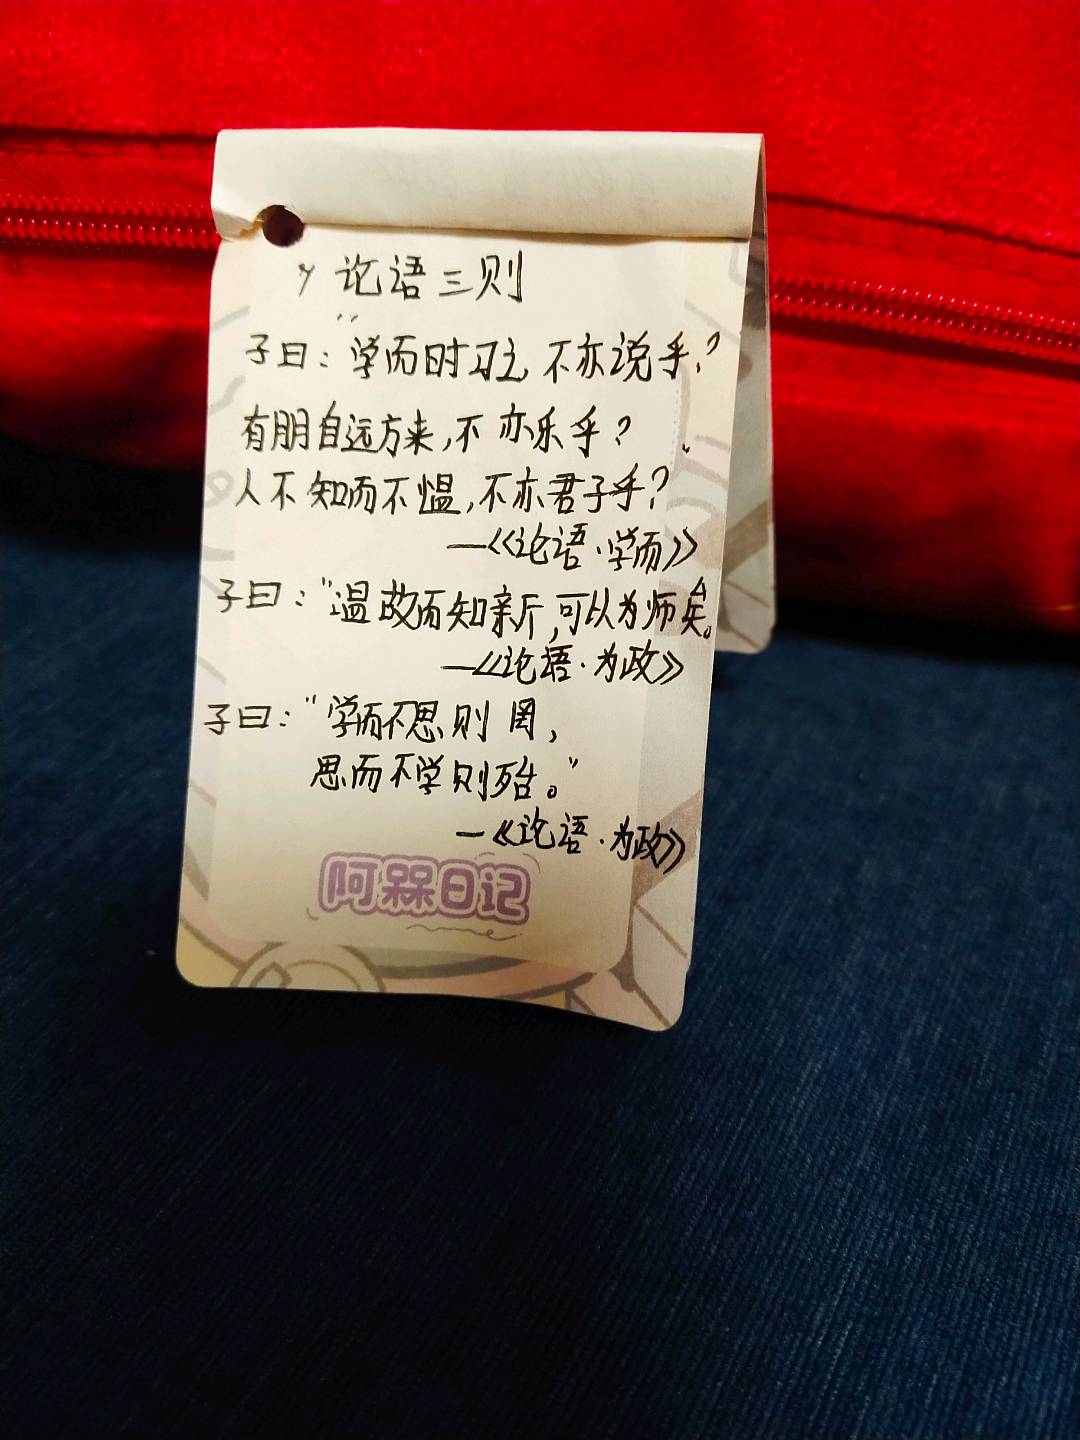 论语三则
子曰：“学而时习之，不亦说乎？
有朋自远方来，不亦乐乎？
人不知而不愠，不亦君子乎？
—《论语·学而》
子曰：“温故而知新，可以为师矣。
—《论语·为政》
子曰：“学而不思则罔，
思而不学则殆。”
—《论语·为政》
阿槑日记